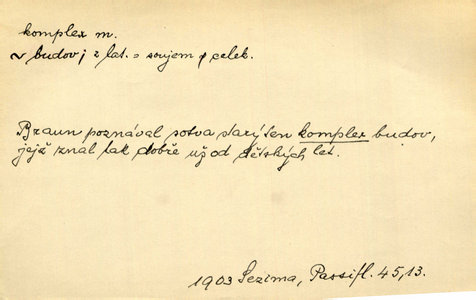 komplex m.
v budov; z lat. = soujem, celek.
Braun poznával sotva starý ten komplex budov,
jejž znal tak dobře už od dětských let.
1903 Sezima, Passifl. 45,13.